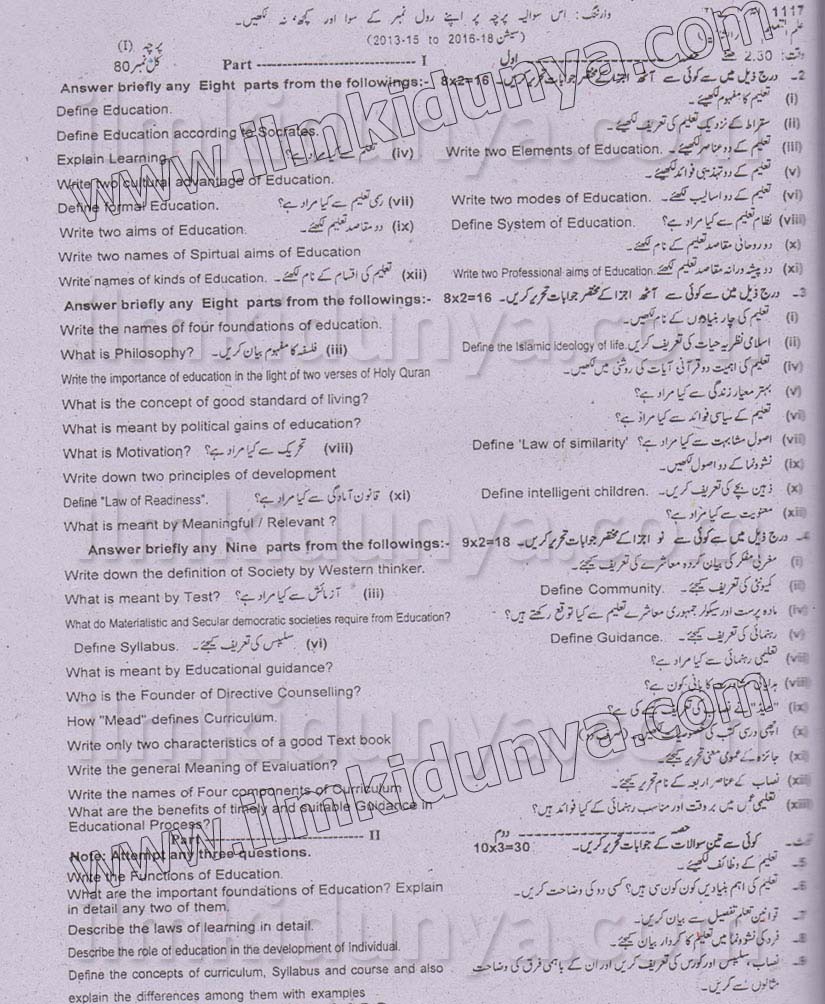 1117
وارننگ: اس سوالیہ پرچہ پر اپنے رول نمبر کے سوا اور کچھ نہ لکھیں۔
(سیشن 2013-15 to 2016-18)
پرچہ (I)
وقت: 2.30 گھنٹے
حصہ اول
Part ------------------------------ I
کل نمبر 80
2- درج ذیل میں سے کوئی سے آٹھ اجزا کے مختصر جوابات تحریر کریں۔ 8x2=16 Answer briefly any Eight parts from the followings:-
(i) تعلیم کا مفہوم لکھیئے۔ Define Education.
(ii) سقراط کے نزدیک تعلیم کی تعریف لکھیئے۔ Define Education according to Socrates.
(iii) تعلیم کے دو عناصر لکھیئے۔ Write two Elements of Education. (iv) تعلّم سے کیا مراد ہے؟ Explain Learning
(v) تعلیم کے دو تہذیبی فوائد لکھیئے۔ Write two cultural advantage of Education.
(vi) تعلیم کے دو اسالیب لکھیئے۔ Write two modes of Education. (vii) رسمی تعلیم سے کیا مراد ہے؟ Define formal Education.
(viii) نظام تعلیم سے کیا مراد ہے؟ Define System of Education. (ix) دو مقاصد تعلیم لکھیئے۔ Write two aims of Education.
(x) دو روحانی مقاصد تعلیم کے نام لکھیئے۔ Write two names of Spirtual aims of Education
(xi) دو پیشہ ورانہ مقاصد تعلیم لکھیئے۔ Write two Professional aims of Education. (xii) تعلیم کی اقسام کے نام لکھیئے۔ Write names of kinds of Education.
3- درج ذیل میں سے کوئی سے آٹھ اجزا کے مختصر جوابات تحریر کریں۔ 8x2=16 Answer briefly any Eight parts from the followings:-
(i) تعلیم کی چار بنیادوں کے نام لکھیں۔ Write the names of four foundations of education.
(ii) اسلامی نظریہ حیات کی تعریف کریں۔ Define the Islamic ideology of life. (iii) فلسفہ کا مفہوم بیان کریں۔ What is Philosophy?
(iv) تعلیم کی اہمیت دو قرآنی آیات کی روشنی میں لکھیں۔ Write the importance of education in the light of two verses of Holy Quran
(v) بہتر معیار زندگی سے کیا مراد ہے؟ What is the concept of good standard of living?
(vi) تعلیم کے سیاسی فوائد سے کیا مراد ہے؟ What is meant by political gains of education?
(vii) اصول مشابہت سے کیا مراد ہے؟ Define 'Law of similarity' (viii) تحریک سے کیا مراد ہے؟ What is Motivation?
(ix) نشوونما کے دو اصول لکھیں۔ Write down two principles of development
(x) ذہین بچے کی تعریف کریں۔ Define intelligent children. (xi) قانون آمادگی سے کیا مراد ہے؟ Define "Law of Readiness".
(xii) معنویت سے کیا مراد ہے؟ What is meant by Meaningful / Relevant ?
4- درج ذیل میں سے کوئی سے نو اجزا کے مختصر جوابات تحریر کریں۔ 9x2=18 Answer briefly any Nine parts from the followings:-
(i) مغربی مفکر کی بیان کردہ معاشرے کی تعریف کیجئے۔ Write down the definition of Society by Western thinker.
(ii) کمیونٹی کی تعریف کیجئے۔ Define Community. (iii) آزمائش سے کیا مراد ہے؟ What is meant by Test?
(iv) مادہ پرست اور سیکولر جمہوری معاشرے تعلیم سے کیا توقع رکھتے ہیں؟ What do Materialistic and Secular democratic societies require from Education?
(v) رہنمائی کی تعریف کیجئے۔ Define Guidance. (vi) سلیبس کی تعریف کیجئے۔ Define Syllabus.
(vii) تعلیمی رہنمائی سے کیا مراد ہے؟ What is meant by Educational guidance?
(viii) کا بانی کون ہے؟ Who is the Founder of Directive Counselling?
(ix) How "Mead" defines Curriculum.
(x) اچھی درسی کتب کی Write only two characteristics of a good Text book
(xi) جائزہ کے عمومی معنی تحریر کیجئے۔ Write the general Meaning of Evaluation?
(xii) نصاب کے عناصر اربعہ کے نام تحریر کیجئے۔ Write the names of Four components of Curriculum
(xiii) تعلیمی عمل میں بروقت اور مناسب رہنمائی کے کیا فوائد ہیں؟ What are the benefits of timely and suitable Guidance in
Educational Process?
حصہ دوم
Part ------------------------------ II
کوئی سے تین سوالات کے جوابات تحریر کریں۔ 10x3=30 Note: Attempt any three questions.
5- تعلیم کے وظائف لکھیئے۔ Write the Functions of Education.
6- تعلیم کی اہم بنیادیں کون کون سی ہیں؟ کسی دو کی وضاحت کریں۔ What are the important foundations of Education? Explain
in detail any two of them.
7- قوانین تعلم تفصیل سے بیان کریں۔ Describe the laws of learning in detail.
8- فرد کی نشوونما میں تعلیم کا کردار بیان کیجئے۔ Describe the role of education in the development of Individual.
9- نصاب، سلیبس اور کورس کی تعریف کریں اور ان کے باہمی فرق کی وضاحت Define the concepts of curriculum, Syllabus and course and also
مثالوں سے کریں۔ explain the differences among them with examples
www.ilmkidunya.com
www.ilmkidunya.com